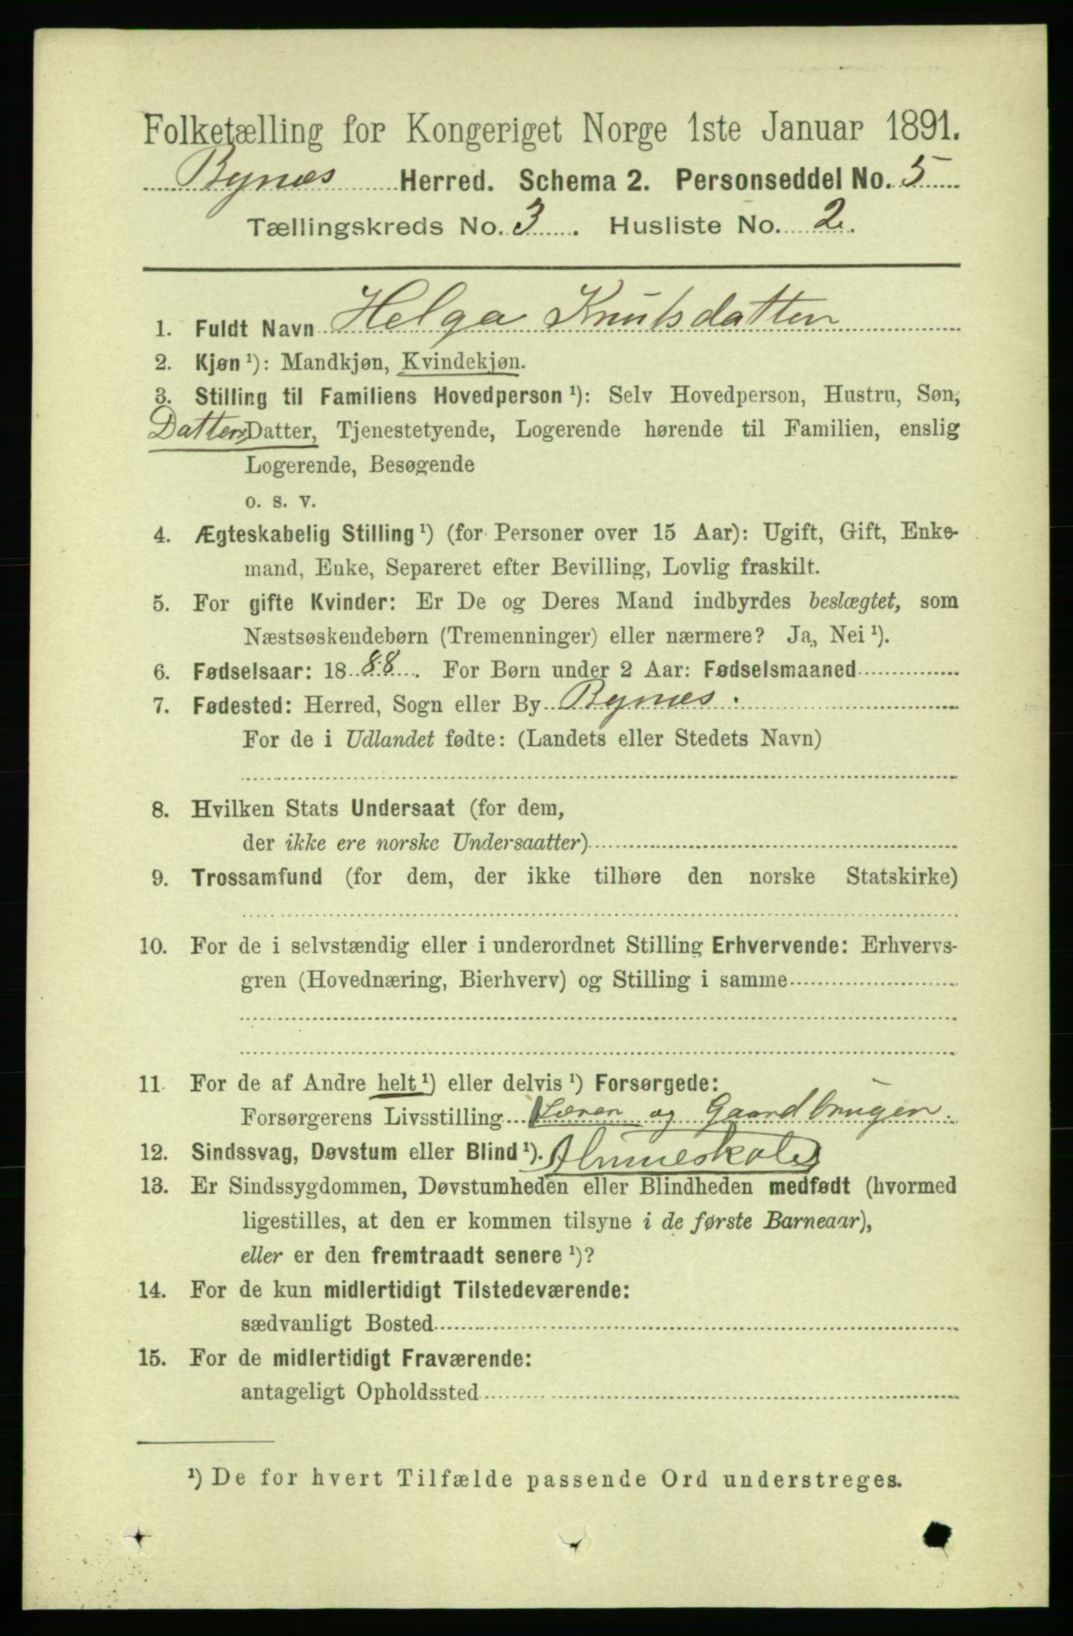 Folketælling for Kongeriget Norge 1ste Januar 1891.
Bynæs Herred. Schema 2. Personseddel No. 5
Tællingskreds No. 3. Husliste No. 2.
1. Fuldt Navn Helga Knutsdatter
2. Kjøn ¹): Mandkjøn, Kvindekjøn.
3. Stilling til Familiens Hovedperson ¹): Selv Hovedperson, Hustru, Søn,
Datters Datter, Tjenestetyende, Logerende hørende til Familien, enslig
Logerende, Besøgende
o. s. v.
4. Ægteskabelig Stilling ¹) (for Personer over 15 Aar): Ugift, Gift, Enke-
mand, Enke, Separeret efter Bevilling, Lovlig fraskilt.
5. For gifte Kvinder: Er De og Deres Mand indbyrdes beslægtet, som
Næstsøskendebørn (Tremenninger) eller nærmere? Ja, Nei ¹).
6. Fødselsaar: 18 88. For Børn under 2 Aar: Fødselsmaaned
7. Fødested: Herred, Sogn eller By Bynæs.
For de i Udlandet fødte: (Landets eller Stedets Navn)
8. Hvilken Stats Undersaat (for dem,
der ikke ere norske Undersaatter)
9. Trossamfund (for dem, der ikke tilhøre den norske Statskirke)
10. For de i selvstændig eller i underordnet Stilling Erhvervende: Erhvervs-
gren (Hovednæring, Bierhverv) og Stilling i samme
11 For de af Andre helt ¹) eller delvis ¹) Forsørgede:
Forsørgerens Livsstilling Lærer og Gaardbruger.
12. Sindssvag, Døvstum eller Blind ¹). Almueskole
13. Er Sindssygdommen, Døvstumheden eller Blindheden medfødt (hvormed
ligestilles, at den er kommen tilsyne i de første Barneaar),
eller er den fremtraadt senere ¹)?
14. For de kun midlertidigt Tilstedeværende:
sædvanligt Bosted
15. For de midlertidigt Fraværende:
antageligt Opholdssted
¹) De for hvert Tilfælde passende Ord understreges.